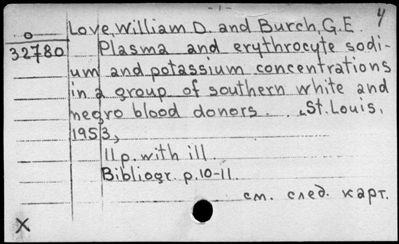 - 1 -
4
Love, William D. and Burch, G.E.
o
32780
Plasma and erythrocyte sodi-
um and potassium concentrations
in a group of southern white and
negro blood donors. St. Louis,
1953,
11p. with ill.
Bibliogr. p.10-11.
см. след. карт.
X